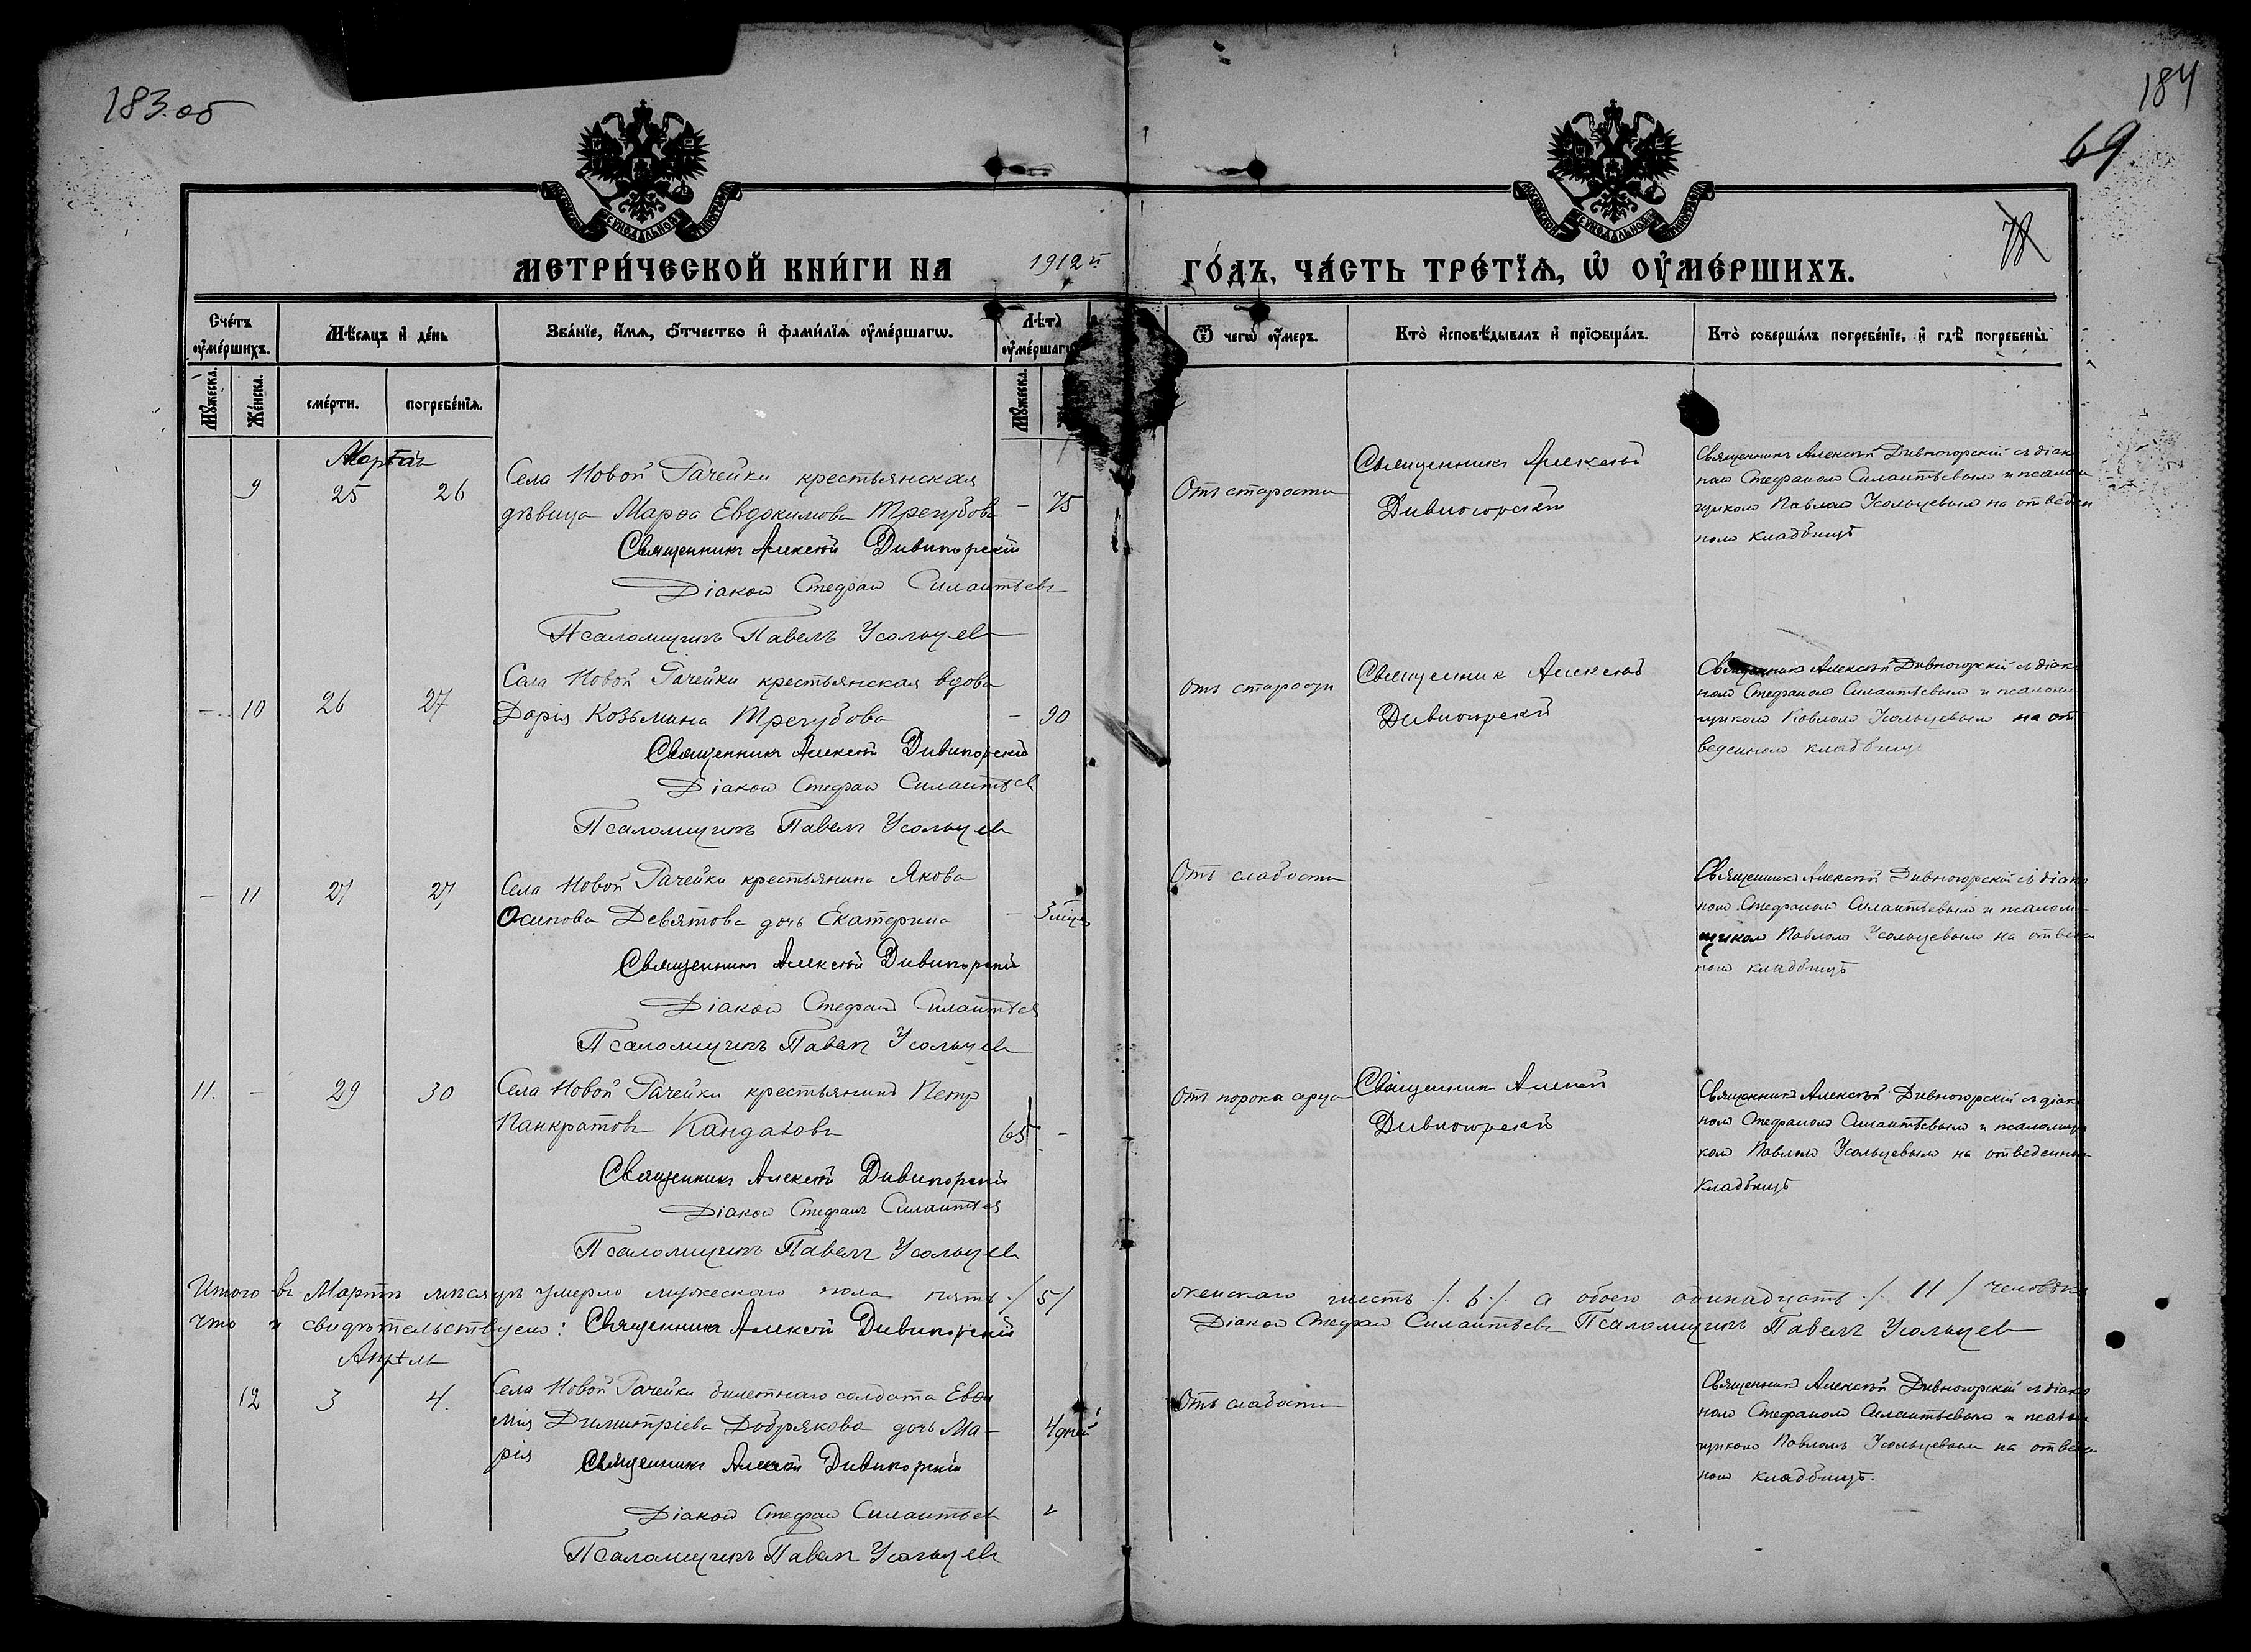 183.об
184
69
МЕТРИ́ЧЕСКОЙ КНИ́ГИ НА 1912й ГО́ДЪ, ЧА́СТЬ ТРЕ́ТЇѦ, Ѡ ОУ҆МЕ́РШИХЪ.
Сче́тъ оу҆ме́ршихъ.
Мѣ́сяцъ и҆ де́нь
Зва́нїе, и҆́мѧ, ѻ҆́тчество и҆ фами́лїѧ оу҆ме́ршагѡ.
Лѣта̀
Ѿ чегѡ̀ оу҆́меръ.
Кто̀ и҆сповѣ́дывалъ и҆ прїѻбща́лъ.
Кто̀ соверша́лъ погребе́нїе, и҆ гдѣ̀ погребены̀.
Мꙋ́жеска.
Же́нска.
сме́рти.
погребе́нїѧ.
Мꙋ́жеска.
Мартъ
9 25 26
Села Новой Рачейки крестьянская
дѣвица Марѳа Евдокимова Трегубова – 75
Священникъ Алексѣй Дивногорскій
Діаконъ Стефанъ Силантьевъ
Псаломщикъ Павелъ Усольцевъ
Отъ старости
Священникъ Алексѣй
Дивногорскій
Священникъ Алексѣй Дивногорскій съ діако
номъ Стефаномъ Силантьевымъ и псалом
щикомъ Павломъ Усольцевымъ на отведен
номъ кладбищѣ
– 10 26 27
Села Новой Рачейки крестьянская вдова
Дарія Козьмина Трегубова – 90
Священникъ Алексѣй Дивногорскій
Діаконъ Стефанъ Силантьев
Псаломщикъ Павелъ Усольцевъ
Отъ старости
Священник Алексѣй
Дивногорскій
Священникъ Алексѣй Дивногорскій съ діако
номъ Стефаномъ Силантьевымъ и псалом
щикомъ Павломъ Усольцевымъ на от
веденномъ кладбищѣ
– 11 27 27
Села Новой Рачейки крестьянина Якова
Осипова Девятова дочь Екатерина –
Священникъ Алексѣй Дивногорскій
Діаконъ Стефанъ Силантьев
Псаломщикъ Павелъ Усольцевъ
Отъ слабости
Священникъ Алексѣй Дивногорскій съ діако
номъ Стефаномъ Силантьевымъ и псалом
щикомъ Павломъ Усольцевымъ на отведен
номъ кладбищѣ
11. – 29 30
Села Новой Рачейки крестьянинъ Петръ
Панкратовъ 65 –
Священникъ Алексѣй Дивногорскій
Діаконъ Стефанъ Силантьев
Псаломщикъ Павелъ Усольцевъ
Отъ порока сердца
Священникъ Алексѣй
Дивногорскій
Священникъ Алексѣй Дивногорскій съ діако
номъ Стефаномъ Силантьевымъ и псаломщи
комъ Павломъ Усольцевымъ на отведенномъ
кладбищѣ
Итого въ Мартѣ мѣсяцѣ умерло мужескаго пола пять /5/ женскаго шесть /.6./ а обоего одинадцать ./ 11 / человѣкъ
Что и свидѣтельствуемъ: Священникъ Алексѣй Дивногорскій Діаконъ Стефанъ Силантьевъ Псаломщикъ Павелъ Усольцевъ
Апрѣль
12 3 4.
Села Новой Рачейки билетнаго солдата Евѳи
мія Димитріева Добрякова дочь Ма– 4 дней
рія
Священникъ Алексѣй Дивногорскій
Діаконъ Стефанъ Силантьев
Псаломщикъ Павелъ Усольцевъ
Отъ слабости
Священникъ Алексѣй Дивногорскій съ діако
номъ Стефаномъ Силантьевымъ и псалом
щикомъ Павломъ Усольцевымъ на отведен
номъ кладбищѣ.